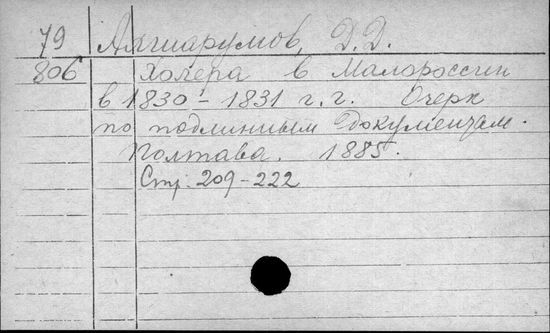 79 Ахшарумов, Д.Д.
806 Холера в Малороссии
в 1830-1831 г.г. Очерк
по подлинным документам.
Полтава. 1885.
Стр. 209-222